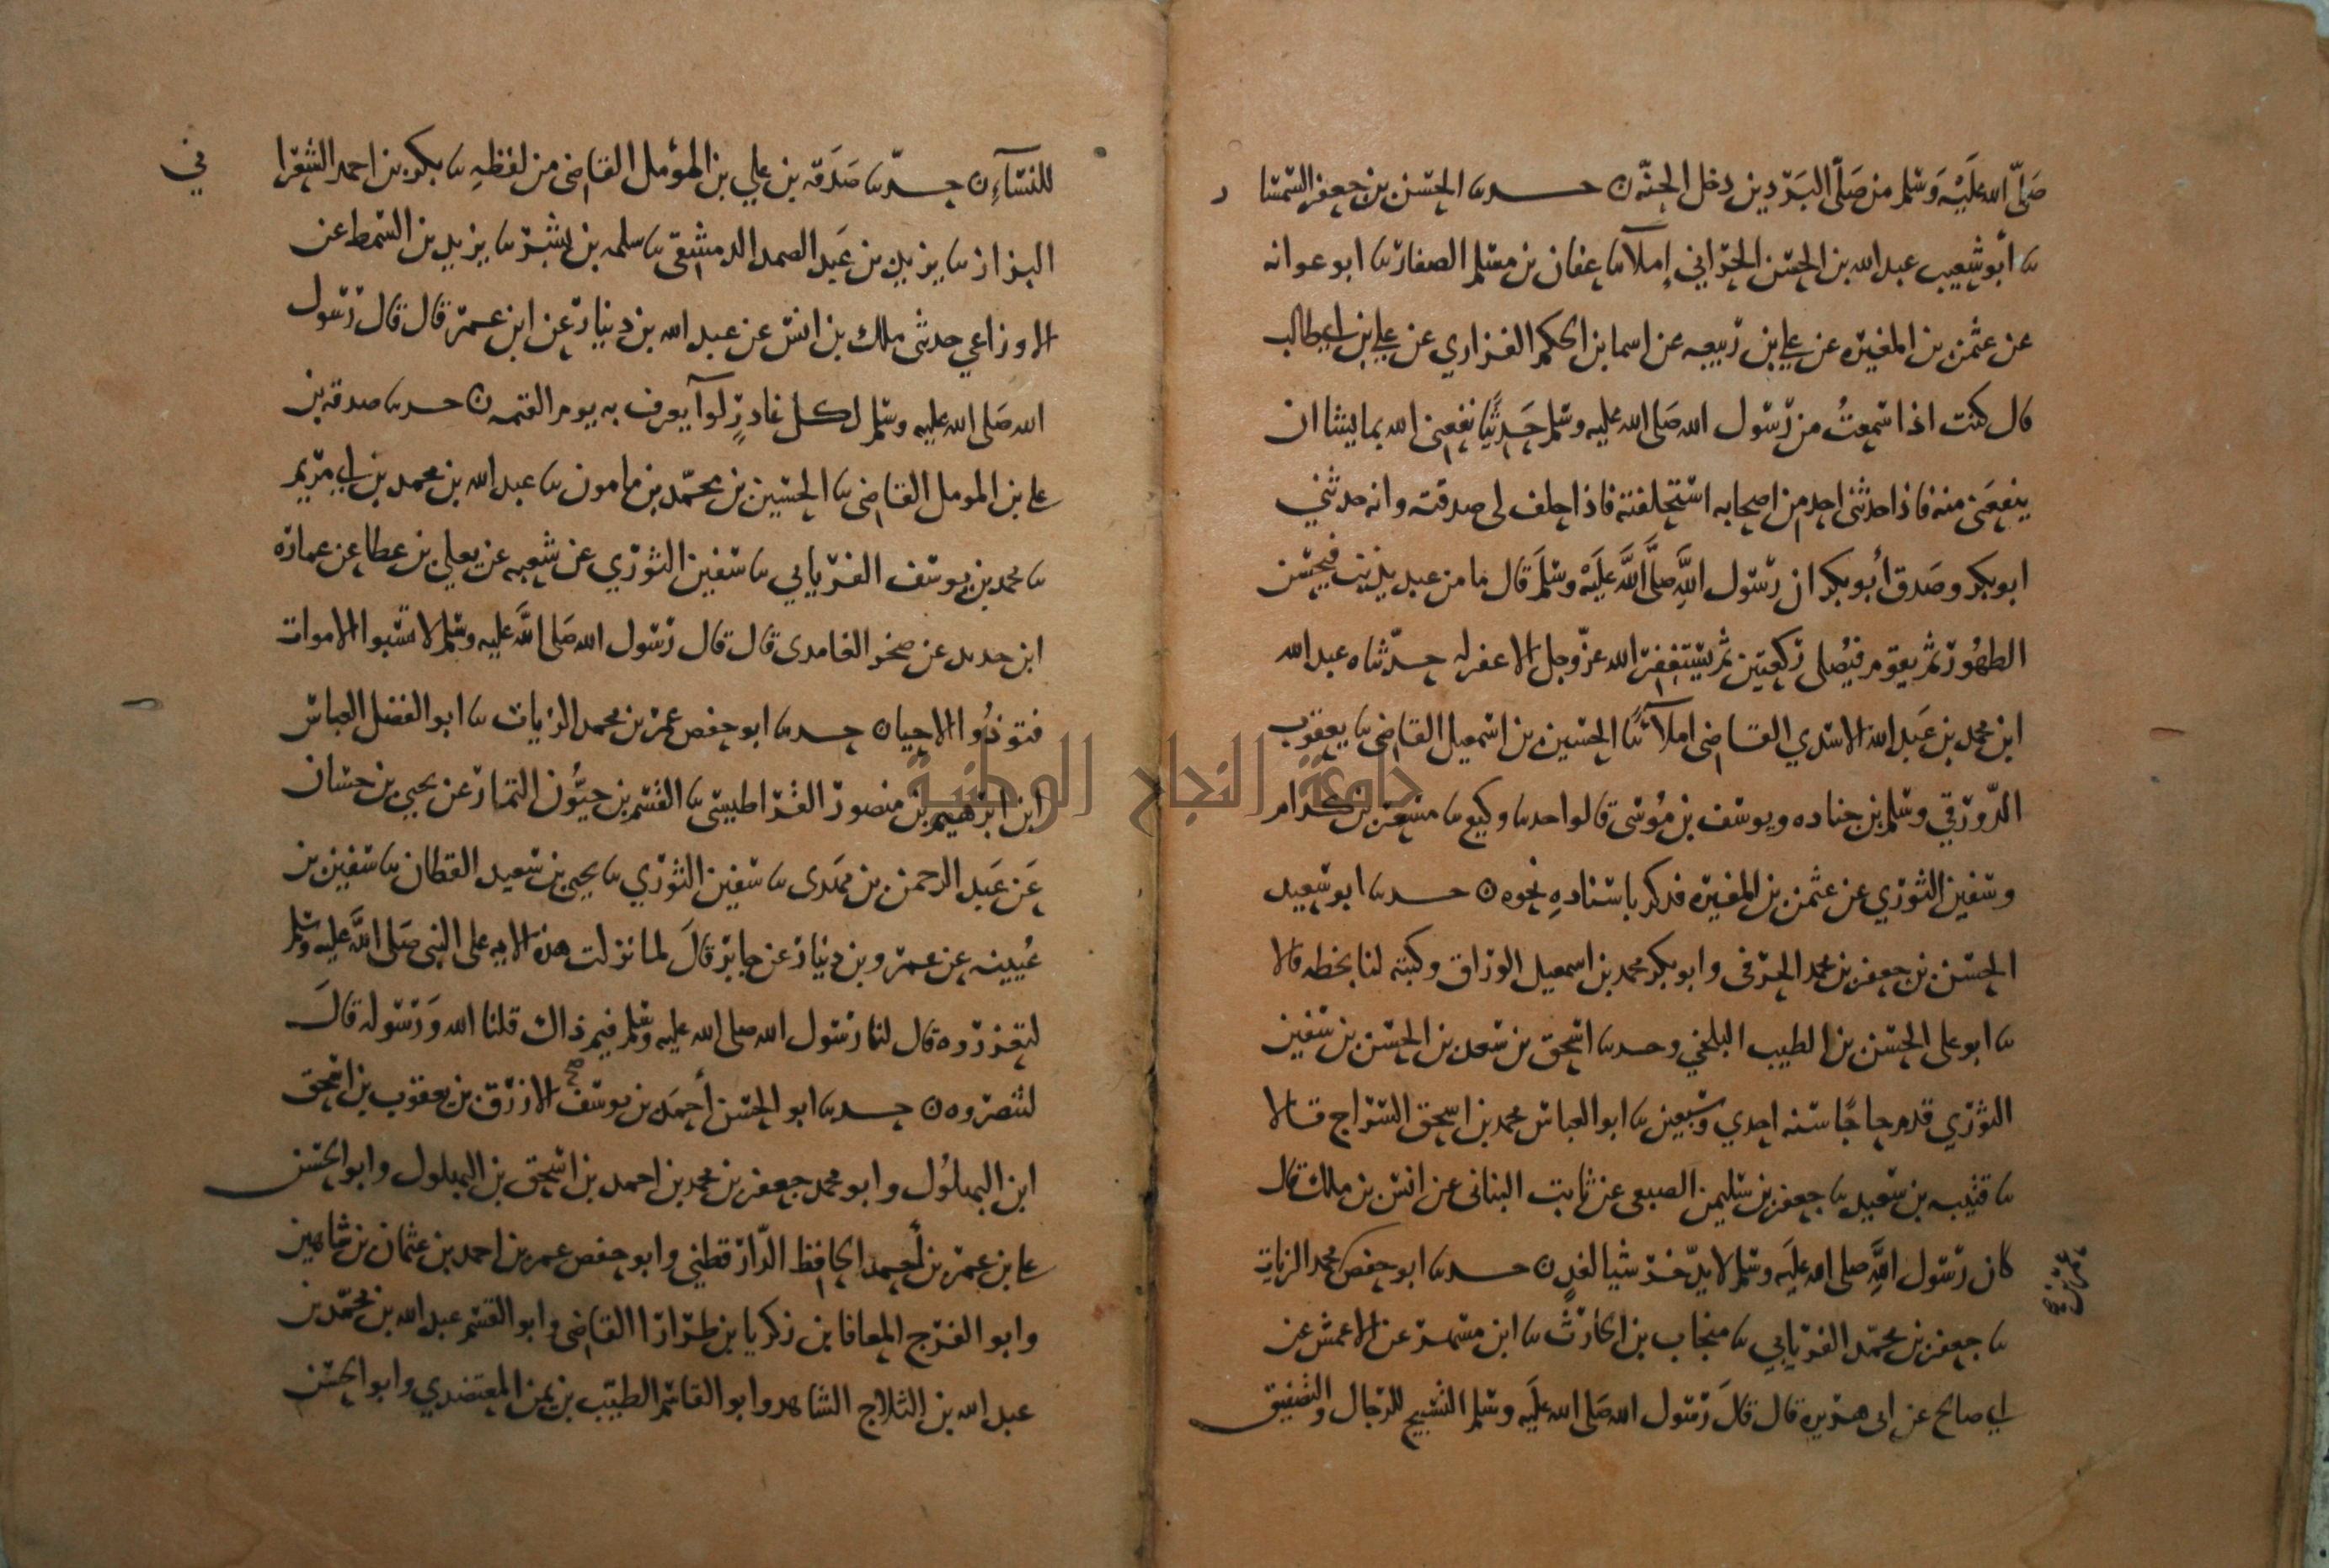 صَلّى الله عَلَيْه وَسَلم من صَلّى البَرْدين دخل الجنّه ن حدثنا الحسن بن جعفر السمسار
ثنا أبو شعيب عبد الله بن الحسن الحراني إملآ ثنا عفان بن مسلم الصفار ثنا ابو عوانه
عن عثمن بن المغيره عن علي بن ربيعه عن اسما بن الحكم الفزاري عن علي بن ابي طالب
قال كنت اذا سمعتُ من رسول الله صَلى الله عليه وسلم حَديثًا نفعني الله بما يشا ان
ينفعَني منه فاذا حدثني احد من اصحابه استحلفته فاذا حلف لى صدقته وانه حدثني
ابو بكر وصَدق أبو بكر ان رسول اللَّهِ صلَّى اللَّه عَلَيْه وسَلمَ قال ما من عبد يذنب فيحسن
الطهُور ثم يقوم فيُصلى ركعتين ثم يستغفر الله عزّ وجل الا غفر له حدّثناه عبد الله
ابن محمد بن عَبد الله الاسدي القاضى املآ ثنا الحسين بن اسمعيل القاضى ثنا يعقوب
الدّورقي وسلم بن جناده ويوسف بن مُوسى قالوا حدثنا وكيع ثنا مسعر بن كدام
وسفين الثوري عن عثمن بن المغيره فذكر باسنادهِ نحوه ن حدثنا ابو سعيد
الحسن بن جعفر بن محمد الحرفى وابو بكر محمد بن اسمعيل الوراق وكتبته لنا بخطه قالا
ثنا ابو على الحسن بن الطيب البلخي وحدثنا اسحق بن سعد بن الحسن بن سفين
الثوري قدم حاجًا سنه احدي وسبعين ثنا ابو العباس محمد بن اسحق السراج قالا
ثنا قتيبه بن سعيد ثنا جعفر بن سليمن الضبعى عن ثابت البنانى عن انس بن ملك قال
كان رسول اللَّهِ صلى الله عليَه وسلم لا يدّخر شيا لغدٍ ن حدثنا ابو حفص محمد الزيات
ثنا جعفر بن محمّد الفريابي ثنا منجاب بن الحارث ثنا ابن مسهر عن الاعمش عن
ابي صالح عن ابى هريرة قال قالَ رسول الله صَلى الله عليَه وسلم التسبيح للرجال والتصفيق
للنسآءِ ن حدّثنا صَدَقه بن علي بن المؤمل القاضى من لفظهِ ثنا بكر بن احمد الشعرا
ني
البزاز ثنا يزيد بن عَبد الصمد الدمشقى ثنا سلمه بن بشر ثنا يزيد بن السمط عن
الاوزاعي حدثنى ملك بن انس عن عبد الله بن دينار عن ابن عمر قال قال رسول
الله صَلى الله عليه وسلم لكل غادرٍ لوآ يعرف به يوم القيمه ن حدثنا صدقه بن
علي بن المومل القاضى ثنا الحسين بن محمّد بن مامون ثنا عبد الله بن محمد بن ابي مريم
ثنا محمد بن يوسف الفريابي ثنا سفين الثوري عن شعبه عن يعلي بن عطا عن عماره
ابن حديد عن صخر الغامدى قال قال رسول الله صَلى اللَّه عليه وسلم لا تسبوا الاموات
فتوذُوا الاحيا ن حدثنا ابو حفص عمر بن محمد الزيات ثنا ابو الفضل العباس
ابن ابرهيم بن منصور القراطيسى ثنا القسم بن حيُّون التمار عن يحيى بن حسان
عَن عَبد الرحمن بن مَهدى ثنا سفين الثوري ثنا يحيى بن سعيد القطان ثنا سفين بن
عُيينه عن عمرو بن دينار عن جابر قالَ لما نزلت هذه الايه على النبى صَلى اللَّه عليه وسلم
لتعزروه قال لنا رسول الله صلى الله عليه وسلم فيم ذاك قلنا الله وَرسوله قالَ
لتنصروه ن حدثنا ابو الحسن أحمد بن يوسف الازرق بن يعقوب بن اسحق
ابن البهلُول وابو محمد جعفر بن محمد بن احمد بن اسحق بن البهلول وابو الحسن
علي بن عمر بن أحمد الحافظ الدّارقطني وابو حفص عمر بن احمد بن عثمان بن شاهين
وابو الفرج المعافا بن زكريا بن طرارا القاضى وابو القسم عبد الله بن محمّد بن
عبد الله بن الثلاج الشاهد وابو القاسم الطيّب بن يمن المعتضدي وابو الحسن
جامعة النجاح الوطنية